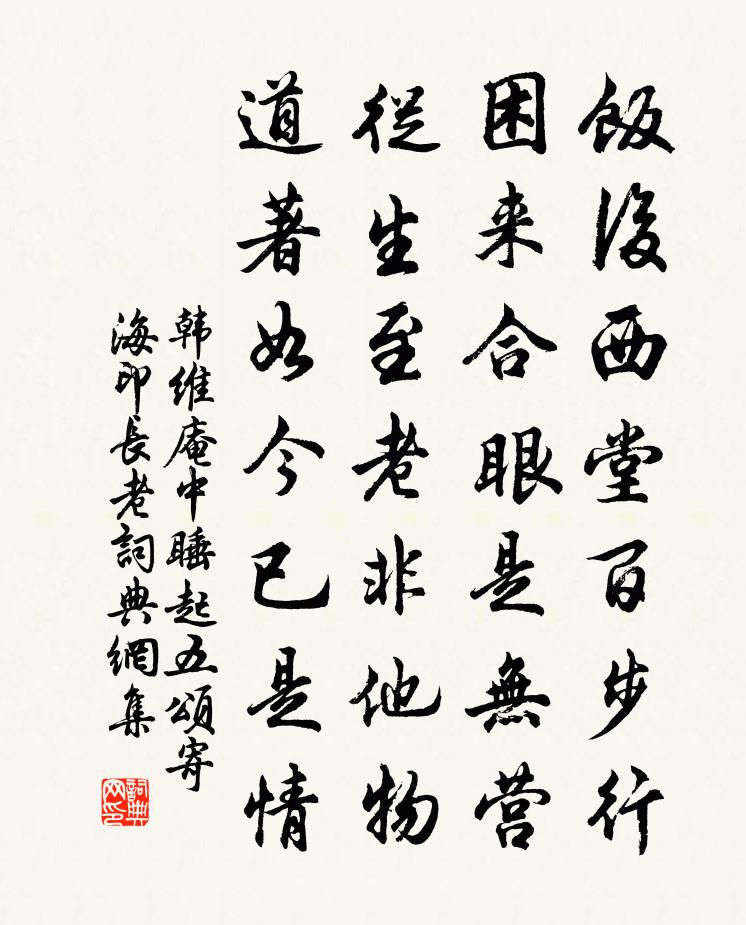 飯後西堂百步行
困来合眼是無营
從生至老非他物
道著如今已是情
韩維庵中睡起五頌寄
海印長老詞典網集
詞典
网印